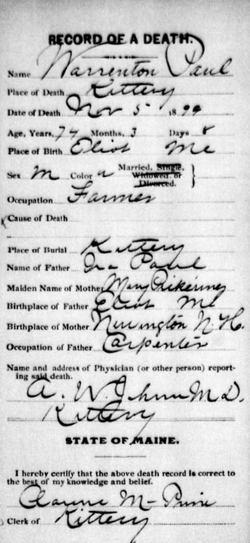 RECORD OF A DEATH.
Name Warrenton Paul
Place of Death Kittery
Date of Death Nov 5 1899
Age, Years, 74 Months, 3 Days 8
Place of Birth Eliot Me
Sex M Color Married, Single,
Widowed, or
Divorced.
Occupation Farmer
Cause of Death
Place of Burial Kittery
Name of Father Ira Paul
Maiden Name of Mother Mary Pickering
Birthplace of Father Eliot Me
Birthplace of Mother Newington N.H.
Occupation of Father Carpenter
Name and address of Physician (or other person) report-
ing said death.
A. W. M.D.
Kittery
STATE OF MAINE.
I hereby certify that the above death record is correct to
the best of my knowledge and belief.
M
Clerk of Kittery